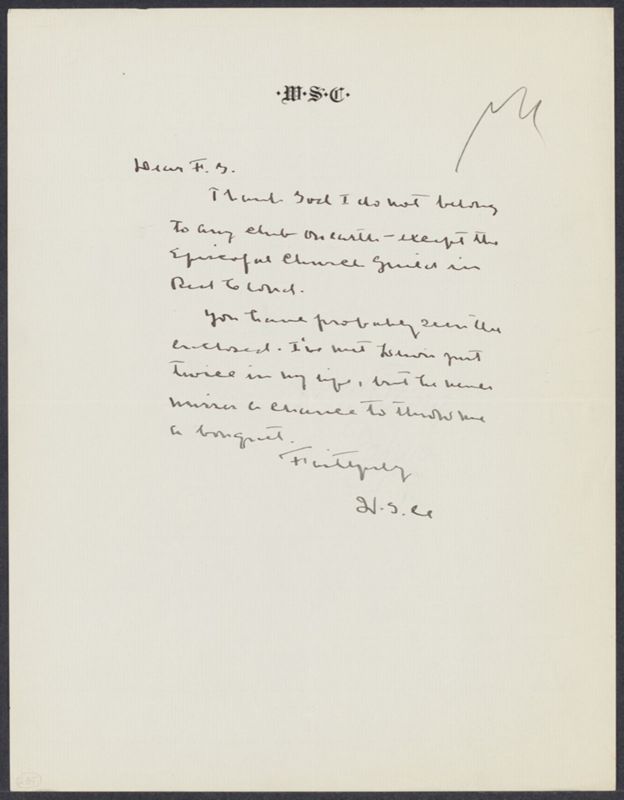 ·W·S·C·
Dear F. G.
Thank God I do not belong
to any club on earth - except the
Episcopal Church Guild in
Red Cloud.
You have probably seen the
enclosed. I've met Lewis just
twice in my life, but he never
misses a chance to throw me
a bouquet.
Faithfully
W. S. C.